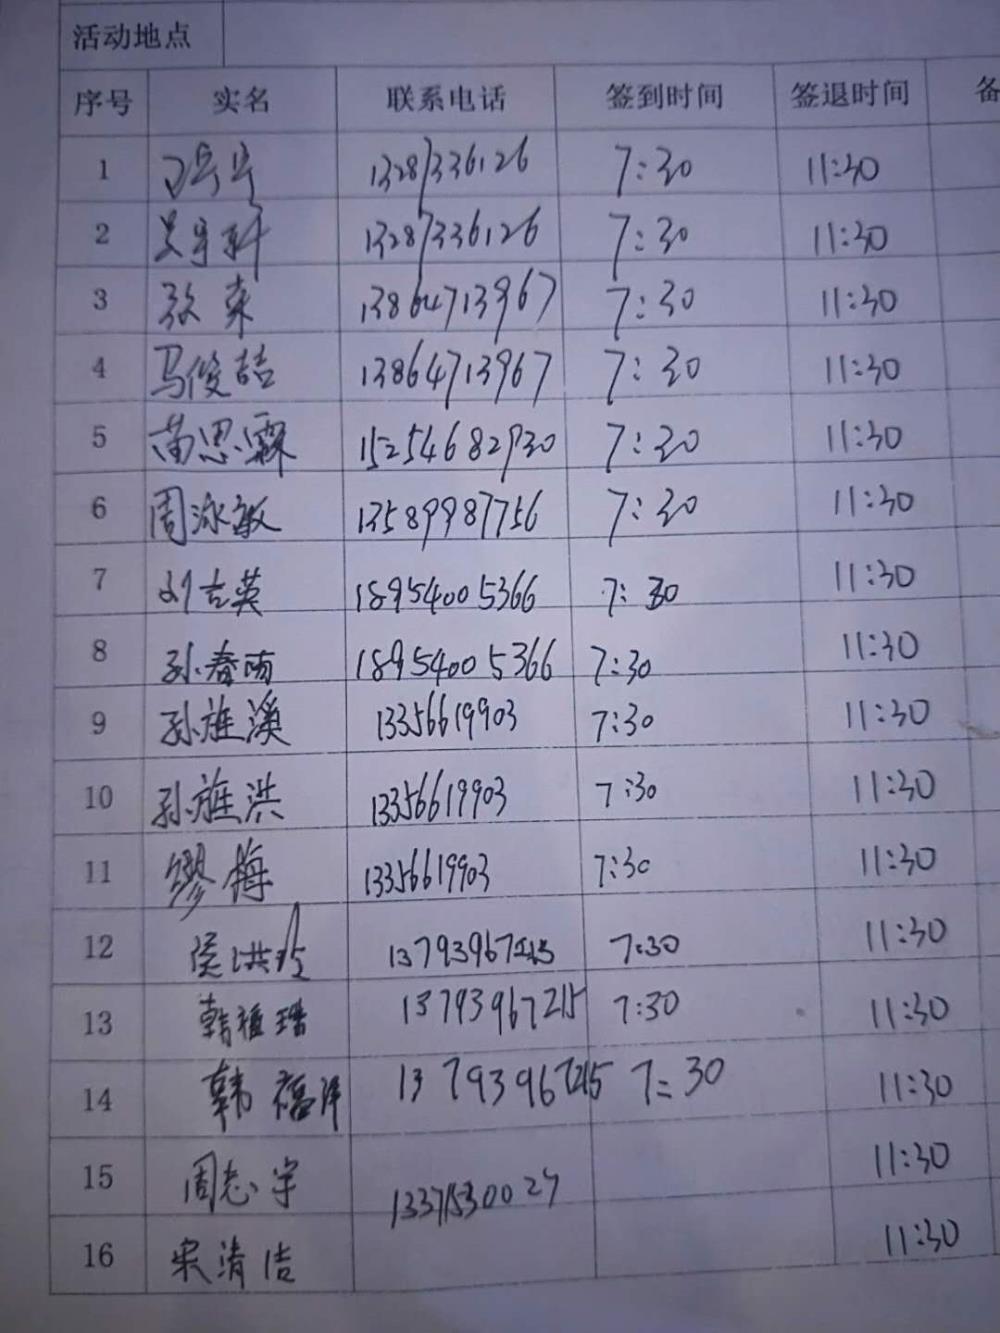 活动地点
序号 实名 联系电话 签到时间 签退时间 备
1 13287336126 7:30 11:30
2 13287336126 7:30 11:30
3 13864713967 7:30 11:30
4 马俊喆 13864713967 7:30 11:30
5 苗思霖 15254682930 7:30 11:30
6 周泳敏 13589987756 7:30 11:30
7 刘吉英 18954005366 7:30 11:30
8 孙春雨 18954005366 7:30 11:30
9 孙旌溪 13356619903 7:30 11:30
10 孙旌洪 13356619903 7:30 11:30
11 缪梅 13356619903 7:30 11:30
12 7:30 11:30
13 13793967215 7:30 11:30
14 韩福洋 13793967215 7:30 11:30
15 周志宇 13371530027 11:30
16 宋清洁 11:30